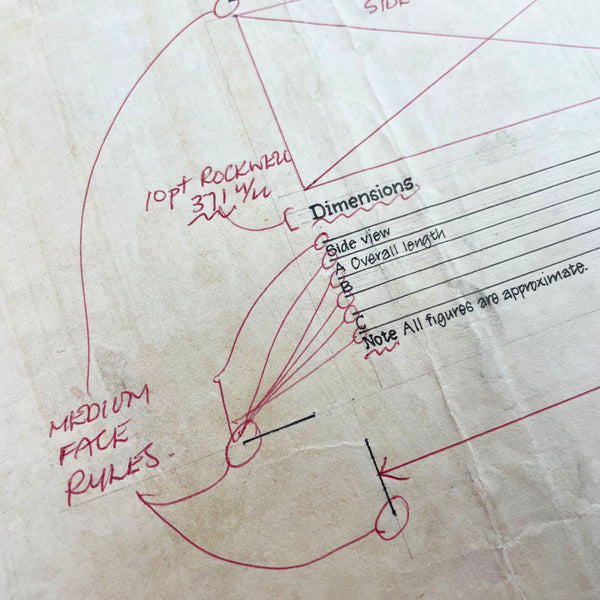 SIDE
10pt ROCKWELL
371 U/L
Dimensions
Side view
A Overall length
B
C
Note All figures are approximate.
MEDIUM
FACE
RULES.